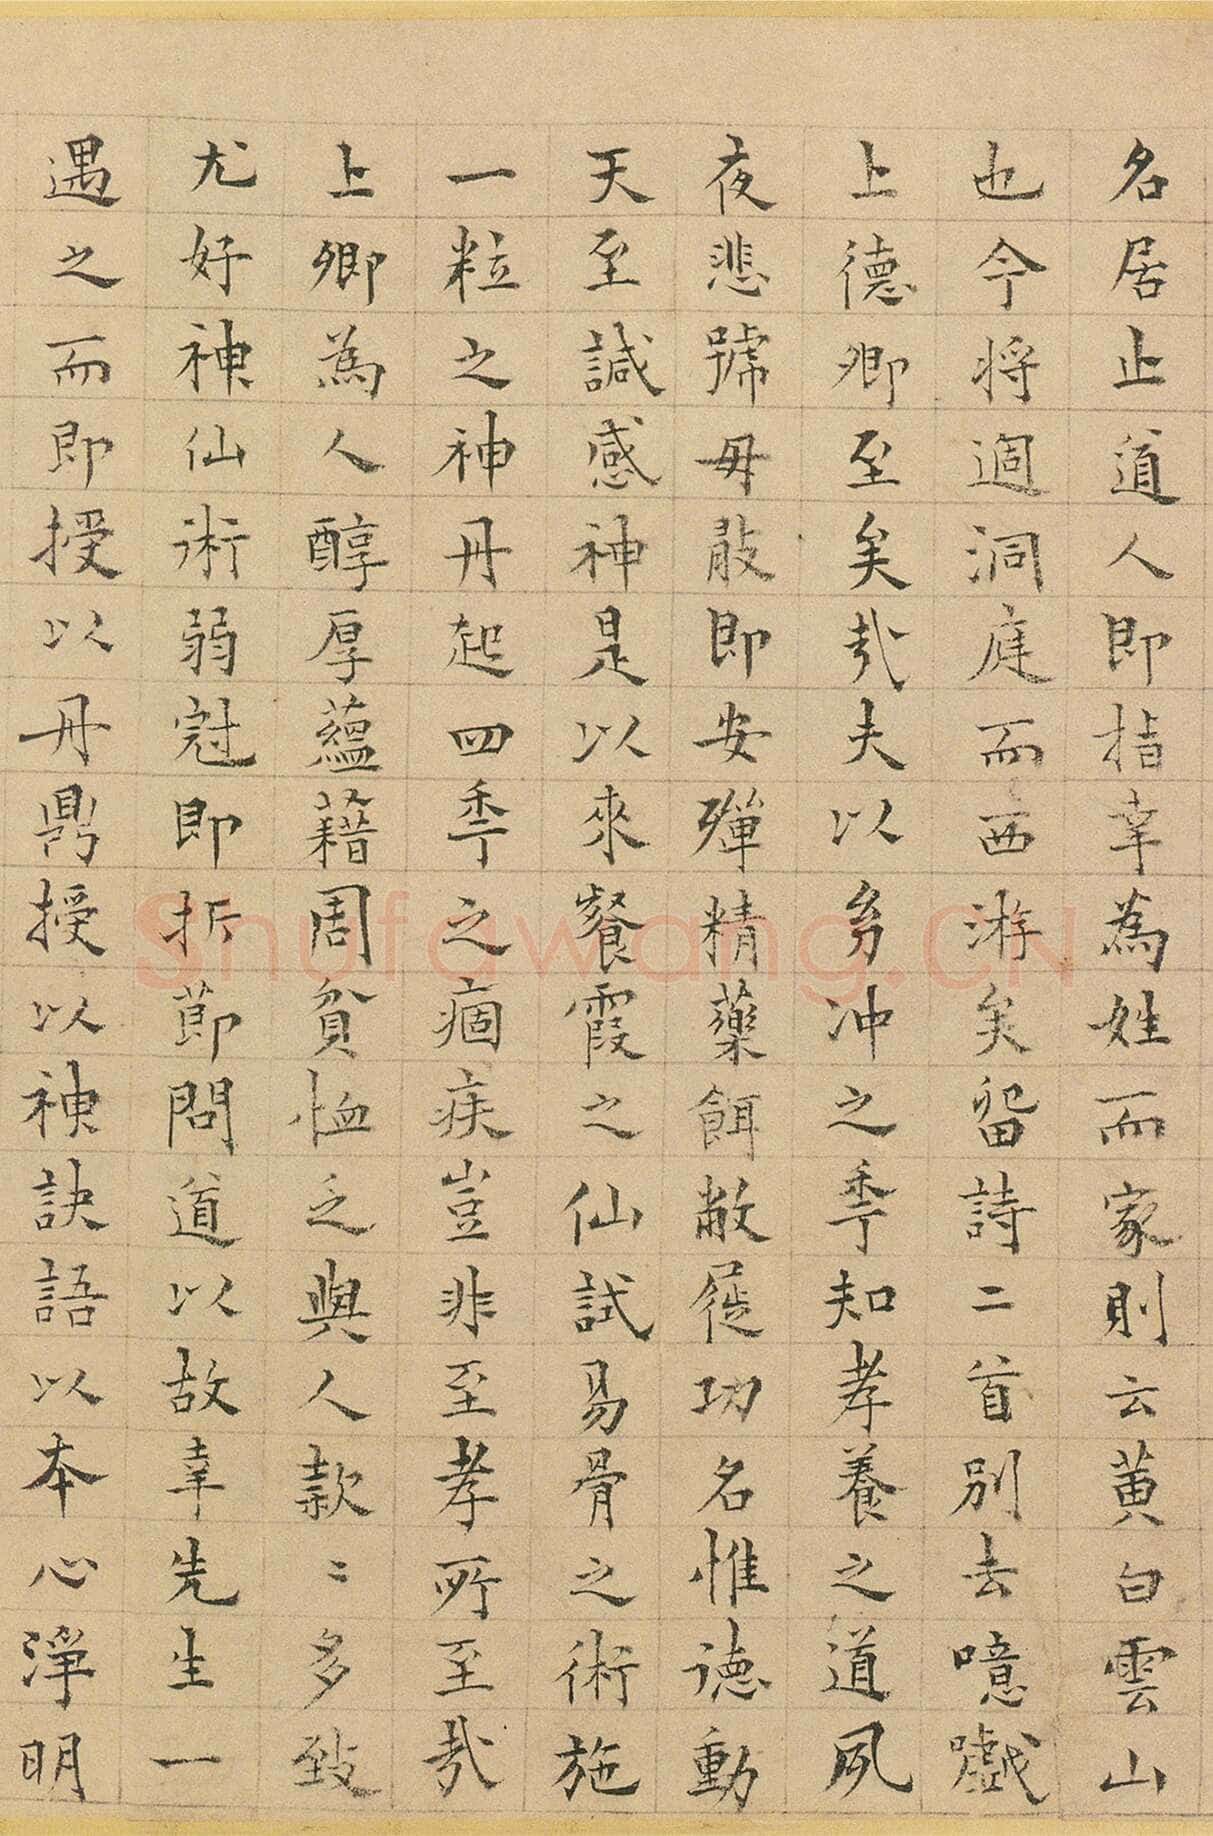 名居止道人即指幸為姓而家則云黄白雲山
也今将週洞庭而西游矣留詩二首别去噫嚱
上德卿至矣哉夫以幼冲之秊知孝養之道夙
夜悲號毋敢即安殫精藥餌敝屣功名惟德動
天至諴感神是以來餐霞之仙試易骨之術施
一粒之神丹起四秊之痼疾豈非至孝所至哉
上卿為人醇厚蘊籍周貧恤乏與人款〻多致
尤好神仙術弱冠即折節問道以故幸先生一
遇之而即授以丹鼎授以神訣語以本心淨明
Shufawang.CN